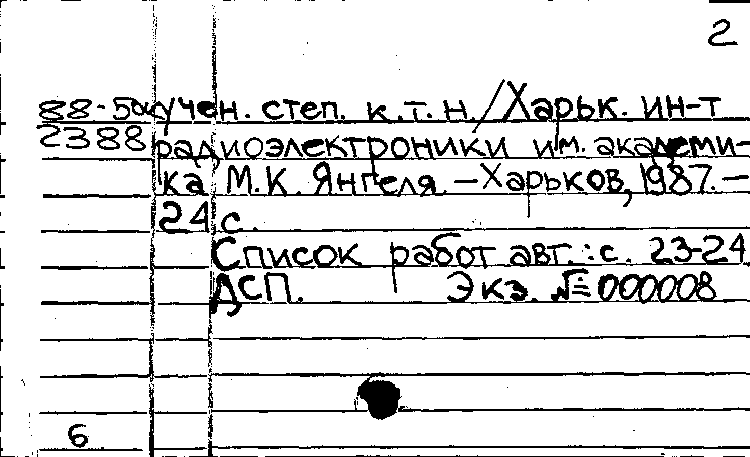 2
88-5дк учен. степ. к.т.н./Харьк. ин-т
2388 радиоэлектроники им. академи-
ка М.К. Янгеля. -Харьков, 1987. -
24 с.
Список работ авт.: с. 23-24
ДСП. Экз. №000008
6